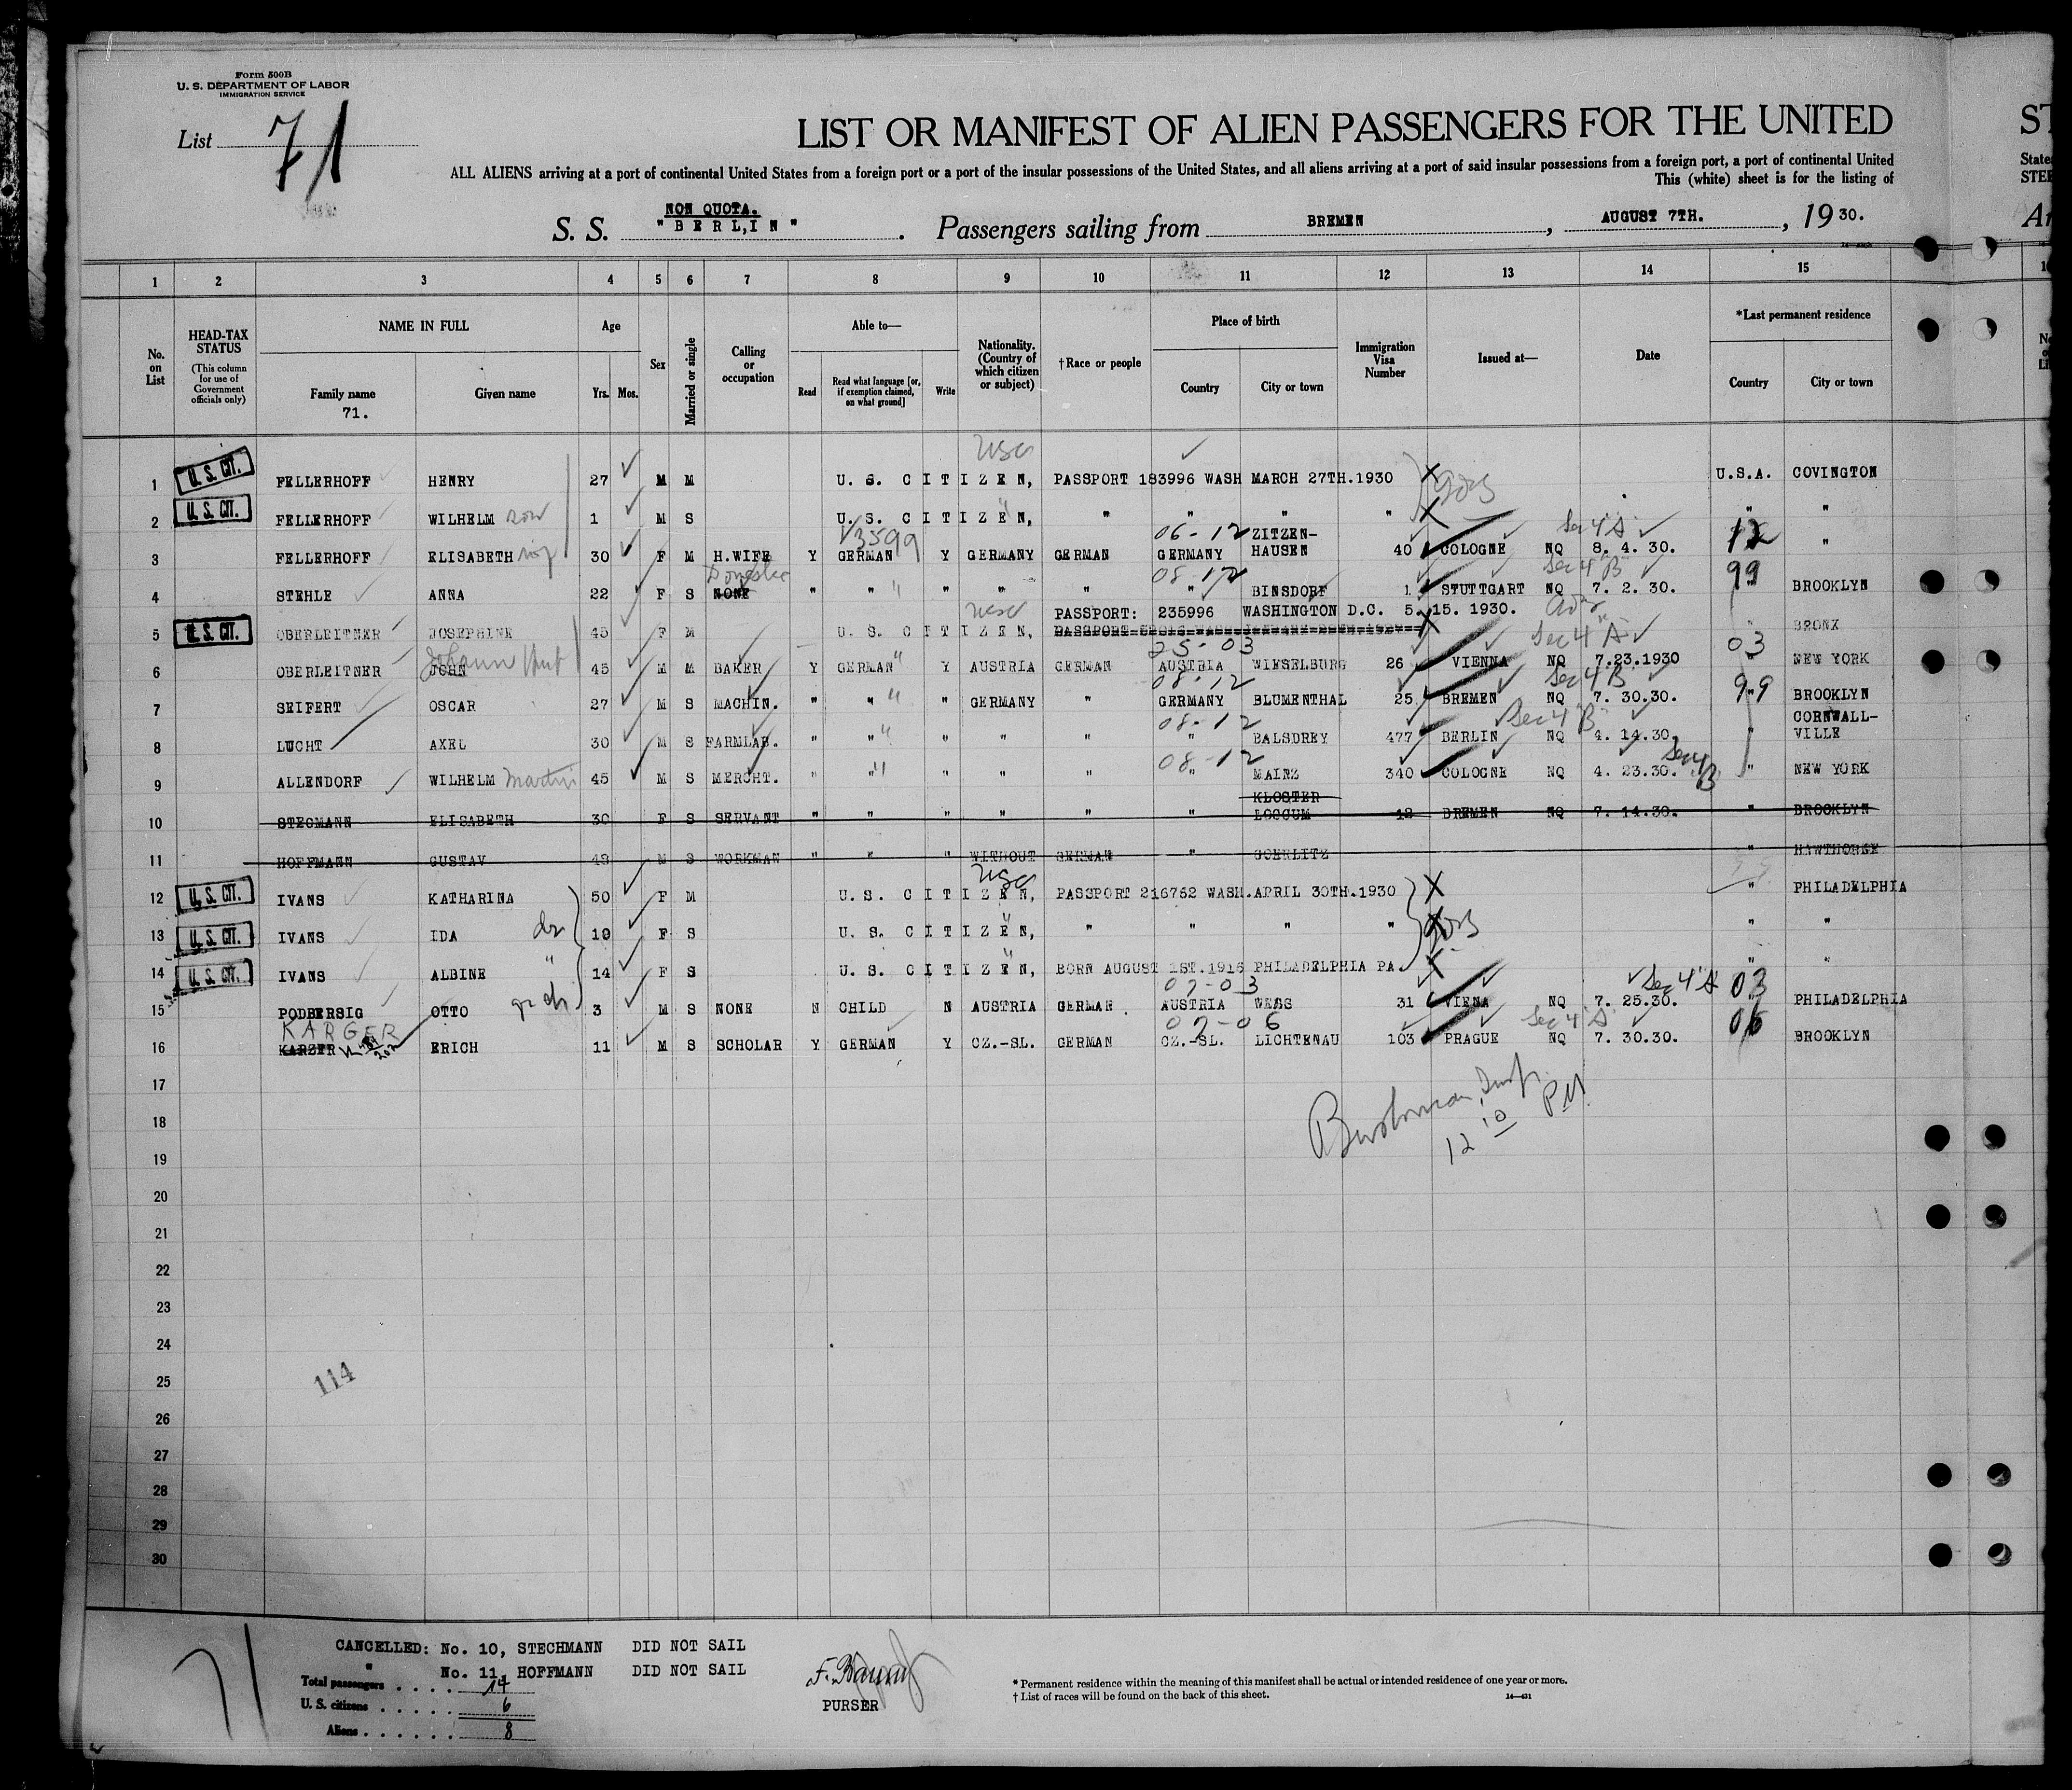 Form 500B
U. S. DEPARTMENT OF LABOR
IMMIGRATION SERVICE
List 71
LIST OR MANIFEST OF ALIEN PASSENGERS FOR THE UNITED ST
ALL ALIENS arriving at a port of continental United States from a foreign port or a port of the insular possessions of the United States, and all aliens arriving at a port of said insular possessions from a foreign port, a port of continental United State
This (white) sheet is for the listing of STEE
NON QUOTA.
S. S. "BERLIN". Passengers sailing from BREMEN, AUGUST 7TH., 1930. Ar
1 2 3 4 5 6 7 8 9 10 11 12 13 14 15
No. on List
HEAD-TAX STATUS (This column for use of Government officials only)
NAME IN FULL
Family name Given name
71.
Age
Yrs. Mos.
Sex
Married or single
Calling or occupation
Able to—
Read Read what language [or, if exemption claimed, on what ground] Write
Nationality. (Country of which citizen or subject)
†Race or people
Place of birth
Country City or town
Immigration Visa Number
Issued at—
Date
*Last permanent residence
Country City or town
usc
1 U.S. CIT. FELLERHOFF HENRY 27 M M U. S. CITIZEN, PASSPORT 183996 WASH MARCH 27TH.1930 X U.S.A. COVINGTON
2 U.S. CIT. FELLERHOFF WILHELM son 1 M S U. S. CITIZEN, " " " " X " "
13599 06-12 ZITZEN- Sec 4 A
3 FELLERHOFF ELISABETH 30 F M H.WIFE Y GERMAN Y GERMANY GERMAN GERMANY HAUSEN 40 COLOGNE NQ 8. 4. 30. 12 "
Domestic 08-12 Sec 4 B 99
4 STEHLE ANNA 22 F S NONE " " " " " " BINSDORF 1 STUTTGART NQ 7. 2. 30. " BROOKLYN
usc PASSPORT: 235996 WASHINGTON D.C. 5. 15. 1930.
5 U.S. CIT. OBERLEITNER JOSEPHINE 45 F M U. S. CITIZEN, X " BRONX
Johann 25-03 Sec 4 A 03
6 OBERLEITNER JOHN 45 M M BAKER Y GERMAN Y AUSTRIA GERMAN AUSTRIA WIESELBURG 26 VIENNA NQ 7.23.1930 NEW YORK
08-12 Sec 4 B 99
7 SEIFERT OSCAR 27 M S MACHIN. " " " GERMANY " GERMANY BLUMENTHAL 25 BREMEN NQ 7. 30.30. " BROOKLYN
08-12 Sec 4 B CORNWALL-
8 LUCHT AXEL 30 M S FARMLAB. " " " " " " BALSDREY 477 BERLIN NQ 4. 14.30. " VILLE
08-12 Sec 4 B
9 ALLENDORF WILHELM Martin 45 M S MERCHT. " " " " " " MAINZ 340 COLOGNE NQ 4. 23.30. " NEW YORK
KLOSTER
10 STEGMANN ELISABETH 30 F S SERVANT " " " " " " LOCCUM 18 BREMEN NQ 7. 14.30. " BROOKLYN
11 HOFFMANN GUSTAV 48 M S WORKMAN " " " WITHOUT GERMAN " GOERLITZ " HAWTHORNE
usc
12 U.S. CIT. IVANS KATHARINA 50 F M U. S. CITIZEN, PASSPORT 216762 WASH.APRIL 30TH.1930 X " PHILADELPHIA
13 U.S. CIT. IVANS IDA dr 19 F S U. S. CITIZEN, " " " " X " "
14 U.S. CIT. IVANS ALBINE " 14 F S U. S. CITIZEN, BORN AUGUST 1ST.1916 PHILADELPHIA PA. X " "
07-03 Sec 4 A 03
15 PODBERSIG OTTO gr ch 3 M S NONE N CHILD N AUSTRIA GERMAN AUSTRIA WEGS 31 VIENA NQ 7. 25.30. PHILADELPHIA
KARGER 07-06 Sec 4 A 06
16 KARZER ERICH 11 M S SCHOLAR Y GERMAN Y CZ.-SL. GERMAN CZ.-SL. LICHTENAU 103 PRAGUE NQ 7. 30.30. BROOKLYN
17
18
19
20
21
22
23
24
25
26
27
28
29
30
12 10 PM
114
71
CANCELLED: No. 10, STECHMANN DID NOT SAIL
" No. 11, HOFFMANN DID NOT SAIL
Total passengers . . . . 14
U. S. citizens . . . . . 6
Aliens . . . . . . 8
PURSER
* Permanent residence within the meaning of this manifest shall be actual or intended residence of one year or more.
† List of races will be found on the back of this sheet.
14—431